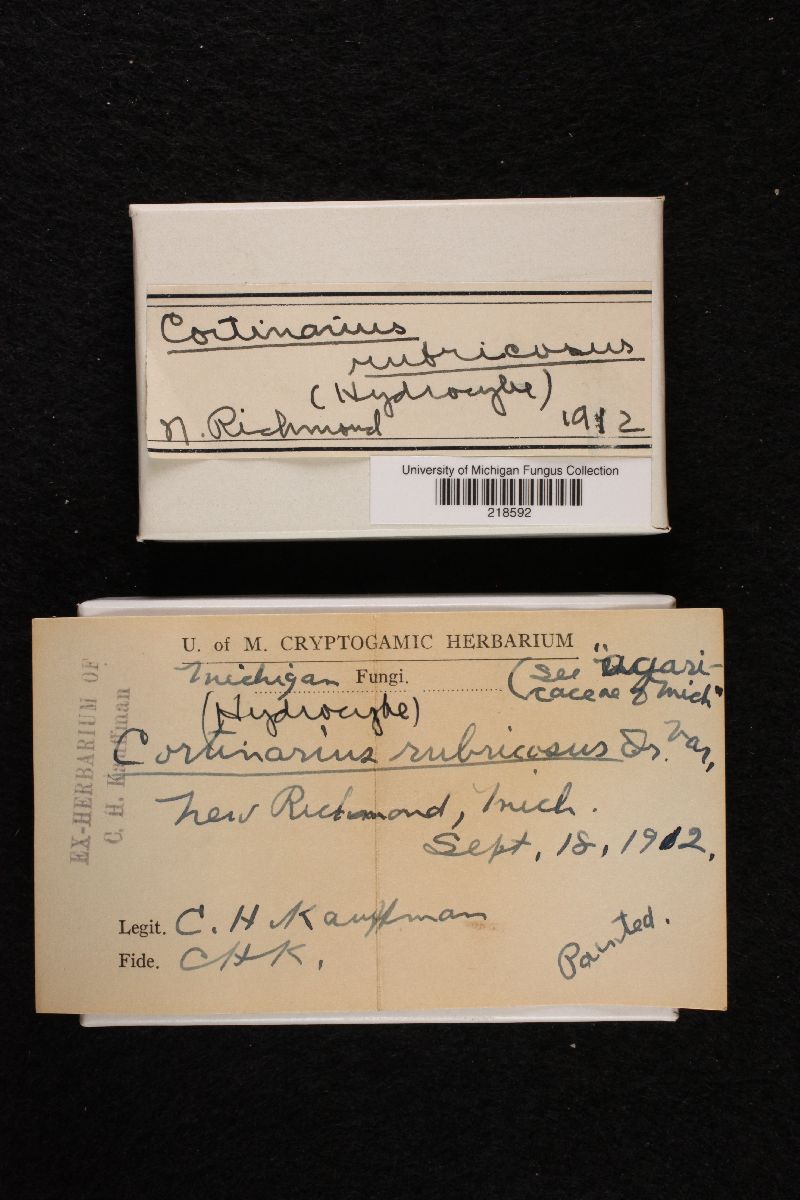 Cortinarius
rubricosus
(Hydrocybe)
N. Richmond 1912
University of Michigan Fungus Collection
218592
U. of M. CRYPTOGAMIC HERBARIUM
Michigan Fungi. (see "Agari-
caceae of Mich"
(Hydrocybe)
Cortinarius rubricosus Fr. Var.
New Richmond, Mich.
Sept, 18, 1912.
Legit. C. H Kauffman
Fide. CHK.
Painted.
EX-HERBARIUM OF
C. H. Kauffman